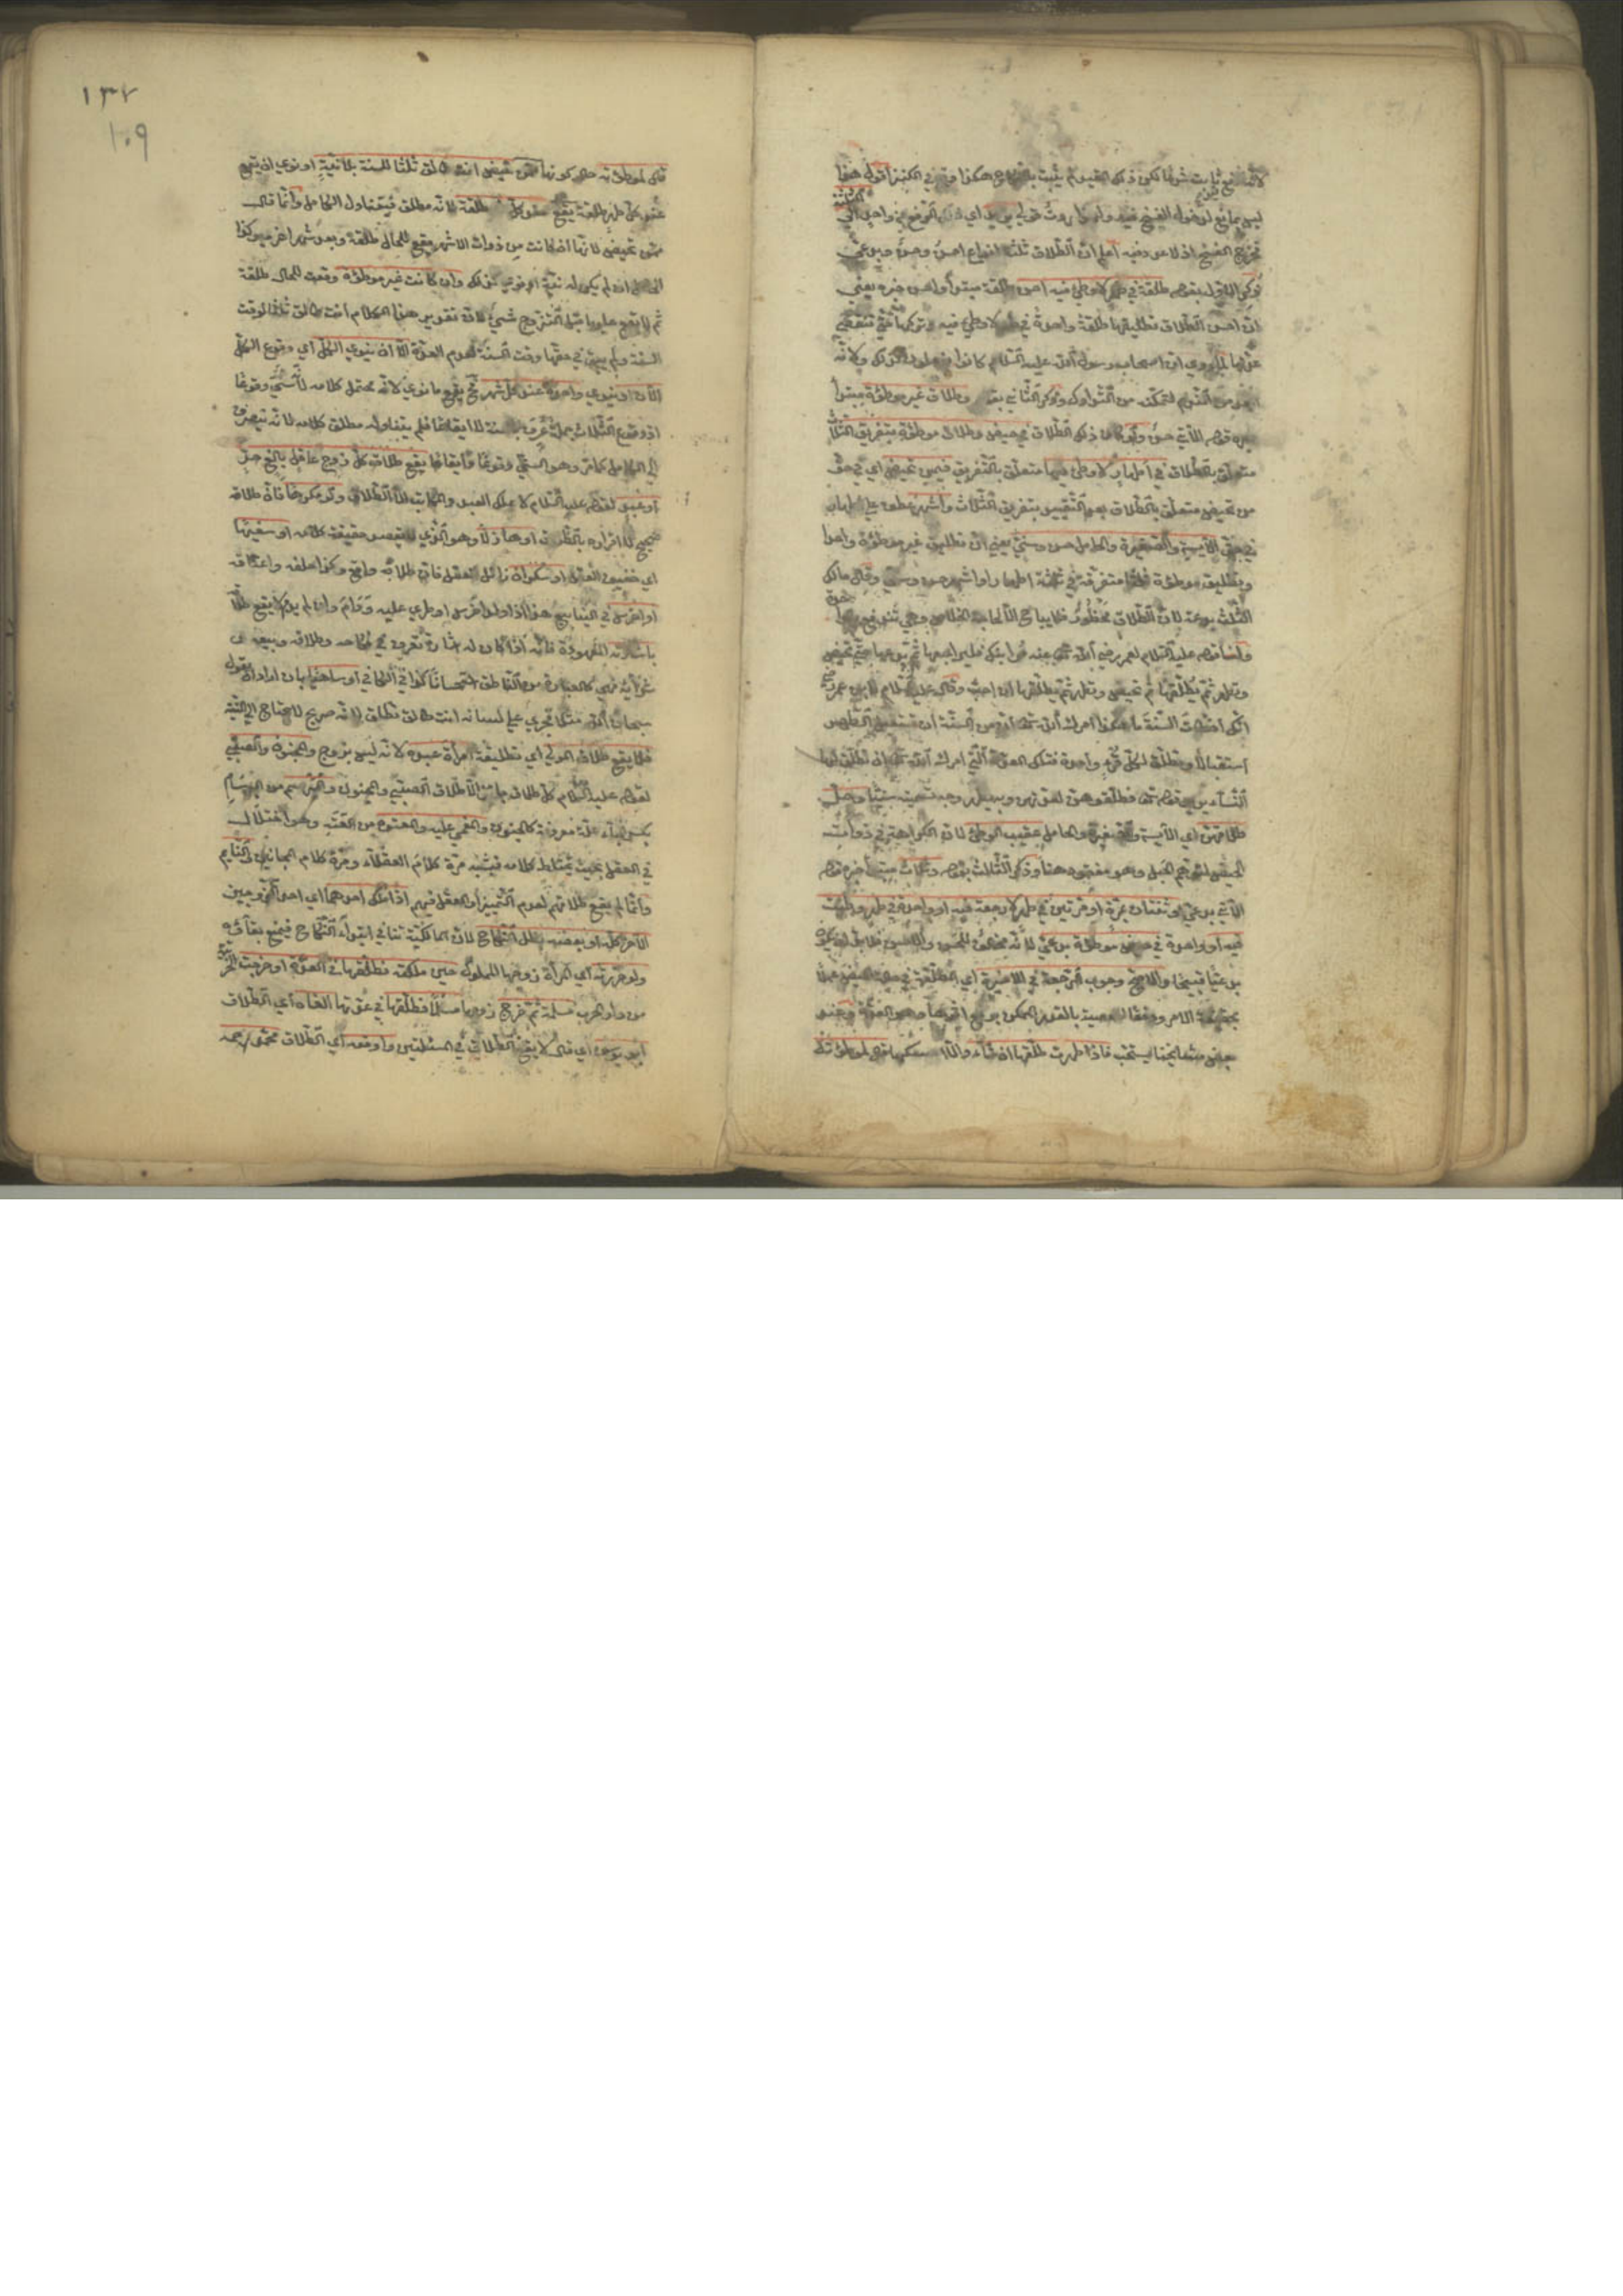 ليس بمانع لدخول الفسخ فيه
تخرج الفسخ اذ لا عدد فيه اعلم ان الطلاق ثلثة انواع احسن وحسن وبدعي
ذكر الاول بقوله طلقة في طهر لا وطئ فيه احسن طلقة مبتدأ واحسن خبره يعني
ان احسن الطلاق تطليقها طلقة واحدة في طهر لا وطئ فيه وتركها حتى تنقضي
عدتها لما روي ان اصحاب رسول الله عليه السلام كانوا يفعلون كذلك ولانه
ابعد من الندم لتمكنه من التدارك وذكر الثاني بقوله وطلاق غير موطؤة مبتدأ
خبره قوله الآتي حسن ولو كان ذلك الطلاق في حيض وطلاق موطؤة بتفريق الثلاث
متعلق بالطلاق في اطهار لا وطئ فيها متعلق بالتفريق فيمن تحيض اي في حق
من تحيض متعلق بالطلاق بعد التقييد بتفريق الثلاث واشهر عطف على اطهار
في حق الآيسة والصغيرة والحامل حسن وسني يعني ان تطليق غير موطؤة واحدا
وتطليق موطؤة ثلثا متفرقة في ثلثة اطهار او اشهر حسن وسني وقال مالك
الثلث بدعة لان الطلاق محظور فلا يباح الا لحاجة الخلاص وهي تندفع بواحدة
ولنا قوله عليه السلام لعمر رضي الله تعالى عنه مر ابنك فليراجعها ثم يدعها حتى تحيض
وتطهر ثم يطلقها ثم تحيض وتطهر ثم يطلقها ان احب وقال عليه السلام لابن عمر
انك اخطأت السنة ما هكذا امرك الله تعالى ان من السنة ان تستقبل الطهر
استقبالا وتطلق لكل قرء واحدة فتلك العدة التي امرك الله تعالى ان تطلق لها
النساء يريد قوله تعالى فطلقوهن لعدتهن وبهذا ظهر وجه تسميته سنيا وحل
طلاقهن اي الآيسة والصغيرة والحامل عقيب الوطئ لان الكراهة في ذوات
الحيض لتوهم الحبل وهو مفقود هنا وذكر الثالث بقوله وثلاث مبتدأ خبره قوله
الآتي بدعي او ثنتان بمرة او مرتين في طهر لا رجعة فيه او واحدة في طهر وطئت
فيه او واحدة في حيض موطؤة بدعي لانه مخالف للحسن والاحسن
بدعيا قبيحا والاصح وجوب الرجعة في الاخيرة اي المطلقة في حالة الحيض عملا
بحقيقة الامر ورفعا للمعصية بالقدر الممكن برفع اثرها وهو العدة وعند
بعض مشايخنا يستحب فاذا طهرت طلقها ان شاء والا امسكها قال لموطؤته
١٣٧
١٠٩
قال لموطؤته حال كونها ممن تحيض انت طالق ثلثا للسنة بلا نية او نوى ان يقع
عند كل طهر طلقة يقع عند كل طهر طلقة لانه مطلق فيتناول الكامل وانما قال
ممن تحيض لانها اذا كانت من ذوات الاشهر يقع للحال طلقة وبعد شهر اخرى وكذا
الحامل ان لم يكن له نية او نوى كذلك وان كانت غير موطؤة وقعت للحال طلقة
ثم لا يقع عليها قبل التزوج شئ لان تقدير هذا الكلام انت طالق ثلثا لوقت
السنة ولم يبق في حقها وقت السنة لعدم العدة الا ان ينوي الكل اي وقوع الكل
الآن او ينوي واحدة عند كل شهر فح يقع ما نوى لانه محتمل كلامه لانه سني وقوعا
اذ وقوع الثلاث جملة عرف بالسنة لا ايقاعا فلم يتناوله مطلق كلامه لانه ينصرف
الى الكامل كما مر وهو السني وقوعا وايقاعا يقع طلاق كل زوج عاقل بالغ حر
او عبد لقوله عليه السلام لا يملك العبد والمكاتب الا الطلاق ولو مكرها فان طلاقه
صحيح لا اقراره بالطلاق او هازلا وهو الذي لا يقصد حقيقة كلامه او سفيها
اي خفيف العقل او سكران زائل العقل فان طلاقه واقع وكذا خلعه واعتاقه
او اخرس في الينابيع هذا اذا ولد اخرس او طرئ عليه ودام وان لم يدم لا يقع طلاقه
باشارته المعهودة فانه اذا كان له اشارة تعرف في نكاحه وطلاقه وبيعه
وشرائه فهي كالعبارة من الناطق استحسانا كذا في الكافي او ساهيا بان اراد ان يقول
سبحان الله مثلا فجرى على لسانه انت طالق تطلق لانه صريح لا يحتاج الى النية
فلا يقع طلاق المولى اي تطليقه امرأة عبده لانه ليس بزوج والمجنون والصبي
لقوله عليه السلام كل طلاق جائز الا طلاق الصبي والمجنون والمبرسم من البرسام
بكسر الباء علة معروفة كالجنون والمغمى عليه والمعتوه من العته وهو اختلال
في العقل بحيث يختلط كلامه فيشبه مرة كلام العقلاء ومرة كلام المجانين والنايم
وانما لم يقع طلاقهم لعدم التمييز او العقل فيهم اذا ملك احدهما اي احد الزوجين
الآخر كله او بعضه بطل النكاح لان المالكية تنافي ابتداء النكاح فيمنع بقاءه
ولو حررته اي المرأة زوجها المملوك حين ملكته فطلقها في العدة او خرجت الحربية
من دار الحرب مسلمة ثم خرج زوجها مسلما فطلقها في عدتها الغاه اي الطلاق
ابو يوسف اي قال لا يقع الطلاق في المسئلتين واوقعه اي الطلاق محمد رحمه